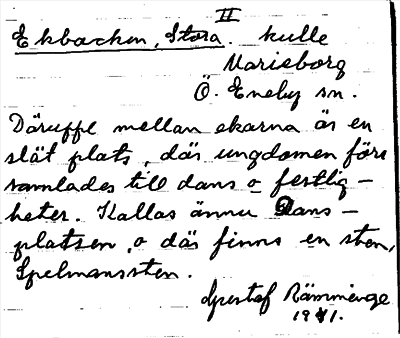 II
Ekbacken, Stora. kulle
Marieborg
Ö. Eneby sn.
Däruppe mellan ekarna är en
slät plats, där ungdomen förr
samlades till dans o festlig-
heter. Kallas ännu Dans-
platsen, o där finns en sten,
Spelmanssten.
Gustaf
1941.